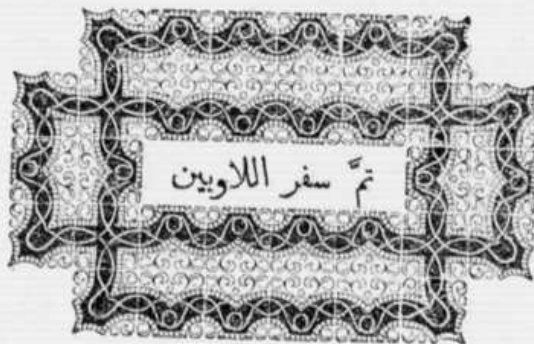 تمَّ سفر اللاويين